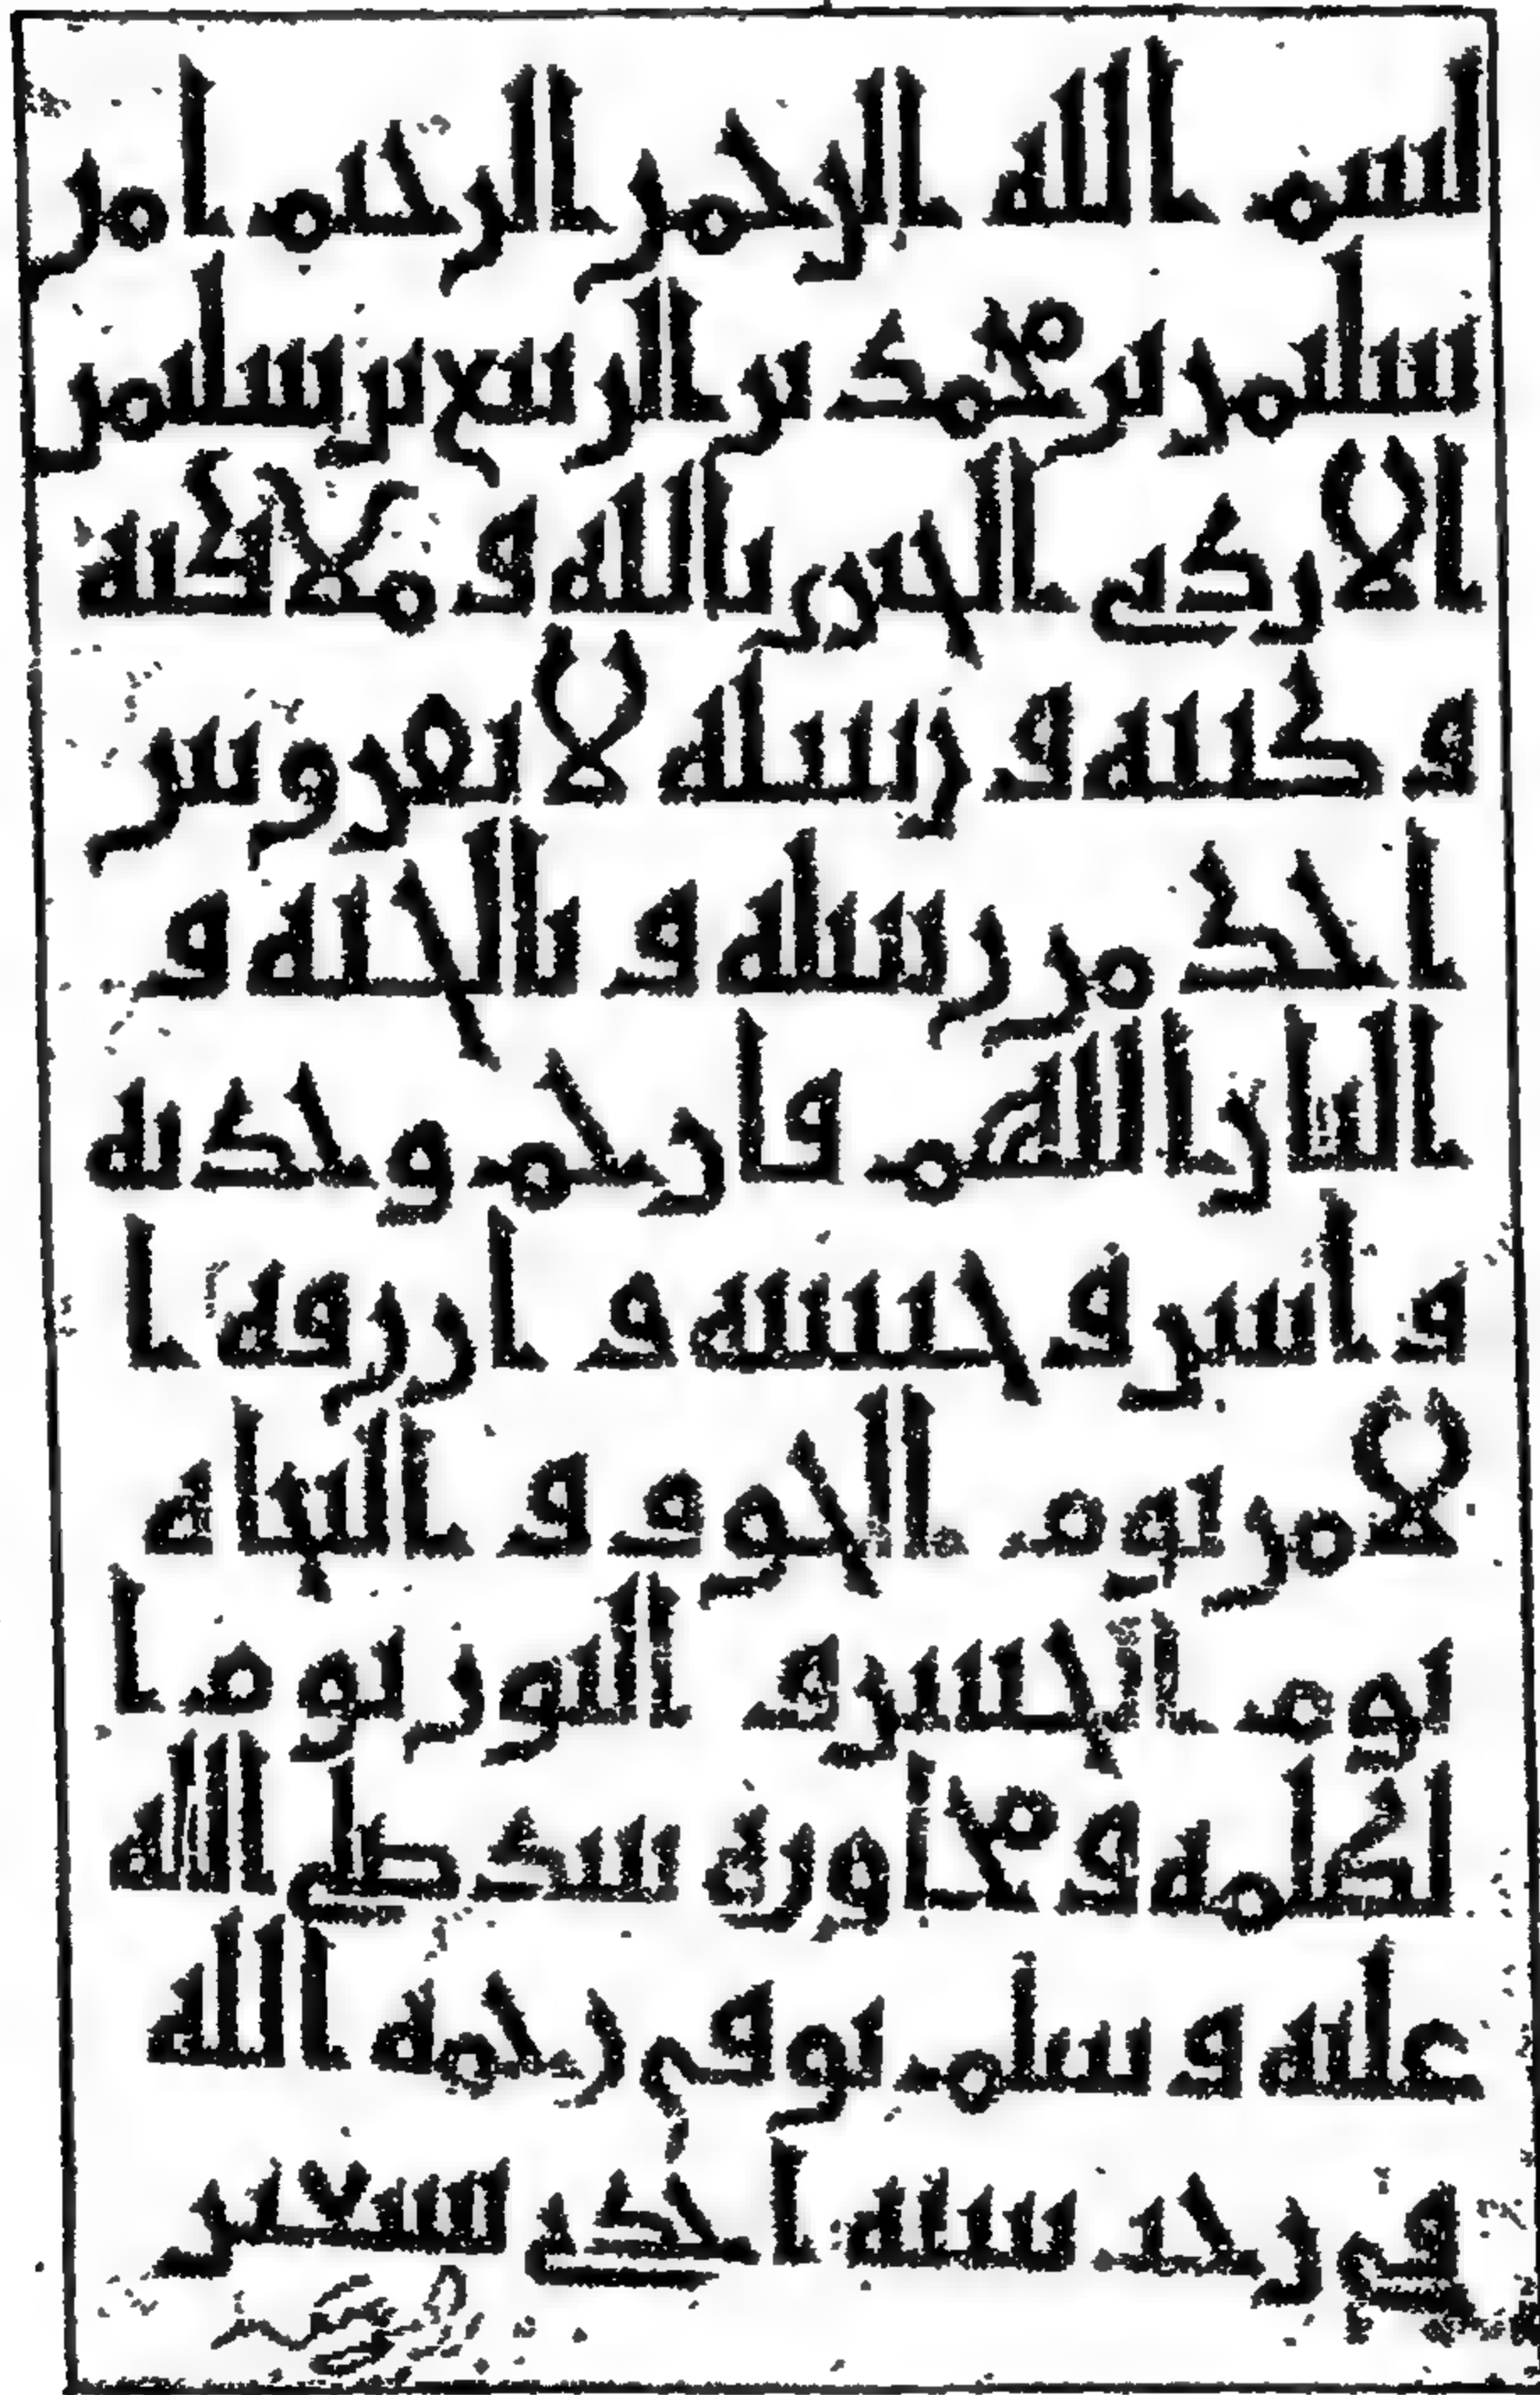 بسم الله الرحمن الرحيم امن
سليمن بن محمد بن الربيع بن سليمن
الازدي الجيزي بالله و ملائكته
و كتبه و رسله لا يفرق بين
احد من رسله و بالجنه و
النار اللهم فارحم وحدته
و انس وحشته و ارزقه ا
لامن يوم الخوف و النجاه
يوم الحشر و النور يوم ا
لظلمه و مجاوره صلى الله
عليه و سلم توفي رحمه الله
في رجب سنه احدى